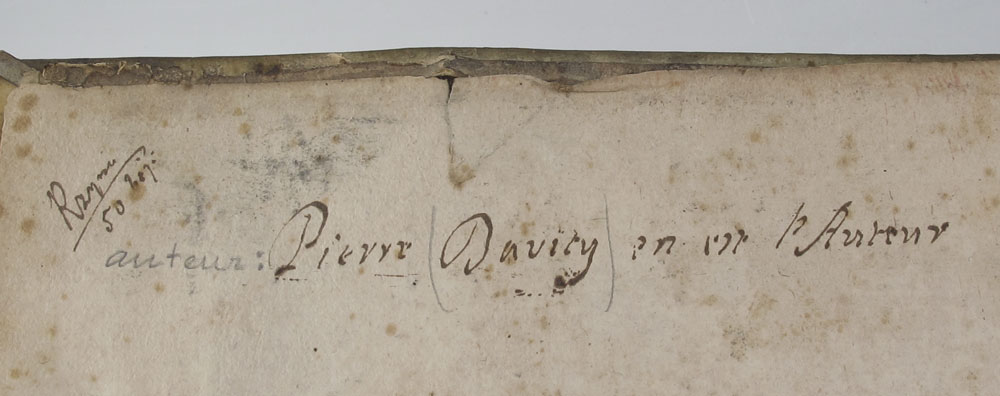 Rayon
50
auteur: Pierre (Davity) en est l'Auteur